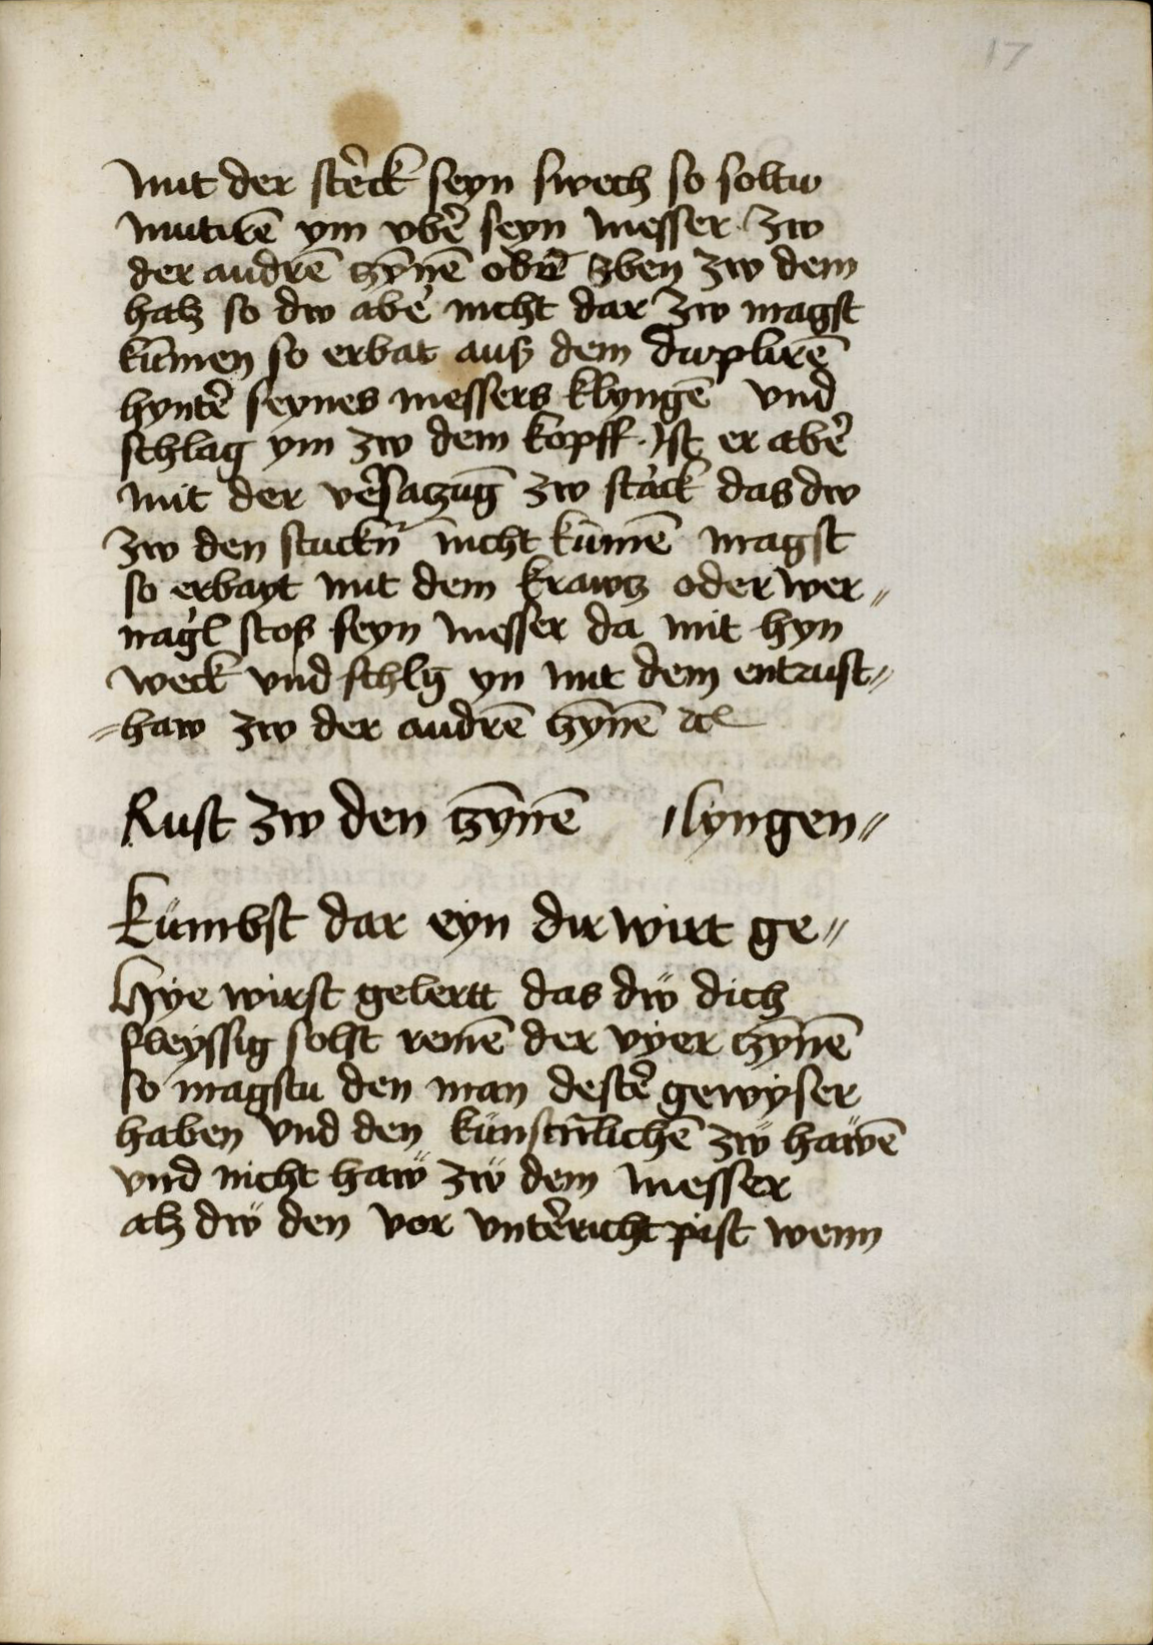 17
mit der stẽck seyn swech so soltu
mutirẽ ym vbẽ seyn messer zw
der andrẽ tzỹnẽ obñ zben zw dem
halz so dw abẽ nicht dar zw magst
kũmen so erbat auß dem duplirẽ
hyntẽ seynes messers klyngẽ vnd
schlag ym zw dem kopff · Ist er abẽ
mit der vẽsatzũg zw starck das dw
zw den stuckñ nicht kũmẽ magst
so erbayt mit dem krawtz oder wer〟
nagl stoß seyn messer da mit hyn
weck vnd schlg yn mit dem entrust〟
〟haw zw der andrẽ tzỹnẽ ⁊c̃
Rust zw den tzỹnẽ lyngen〟
Kümbst dar eyn dir wirt ge〟
Hÿe wirst gelertt das dẅ dich
fleÿssig solst remẽ der vÿer tzỹnẽ
so magstu den man destẽ gewÿser
haben vnd den künstñlichẽ zẅ haẅẽ
vnd nicht haẅ zẅ dem messer
alz dẅ den vor vntẽricht pist wenn